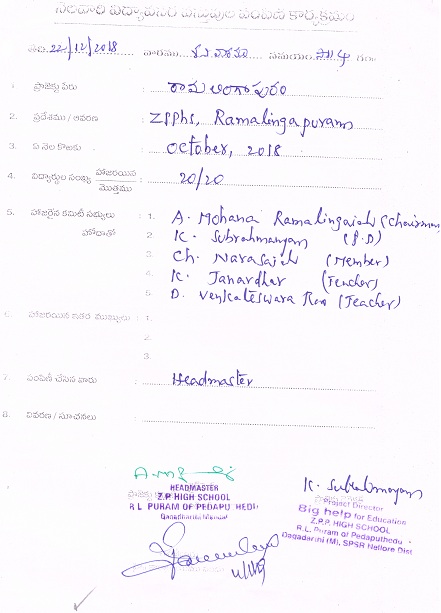 నెలవారి విద్యావసర వస్తువుల పంపిణీ కార్యక్రమం
తేది. 22/12/2018 వారము. శనివారము సమయం. సా 4 గం
1. ప్రాజెక్టు పేరు : రామలింగాపురం
2. ప్రదేశము / ఆవరణ : ZPPhS, Ramalingapuram
3. ఏ నెల కొఱకు : October, 2018
4. విద్యార్థుల సంఖ్య హాజరయిన : 20/20
మొత్తము
5. హాజరైన కమిటీ సభ్యులు : 1. A. Mohana Ramalingaiah (Chairman
హోదాతో 2. K. Subrahmanyam (P.D)
3. Ch. Narasaiah (Member)
4. K. Janardhan (Teacher)
5. D. Venkateswara Rao (Teacher)
6. హాజరయిన ఇతర ముఖ్యులు : 1.
2.
3.
7. పంపిణీ చేసిన వారు : Headmaster
8. వివరణ / సూచనలు :
K. Subrahmanyam
HEADMASTER
Z.P HIGH SCHOOL
R.L PURAM OF PEDAPU HEDU
Dagadharthi Mandal
Project Director
Big help for Education
Z.P.P. HIGH SCHOOL
R.L. Puram of Pedaputhedu
Dagadarthi (M), SPSR Nellore Dist